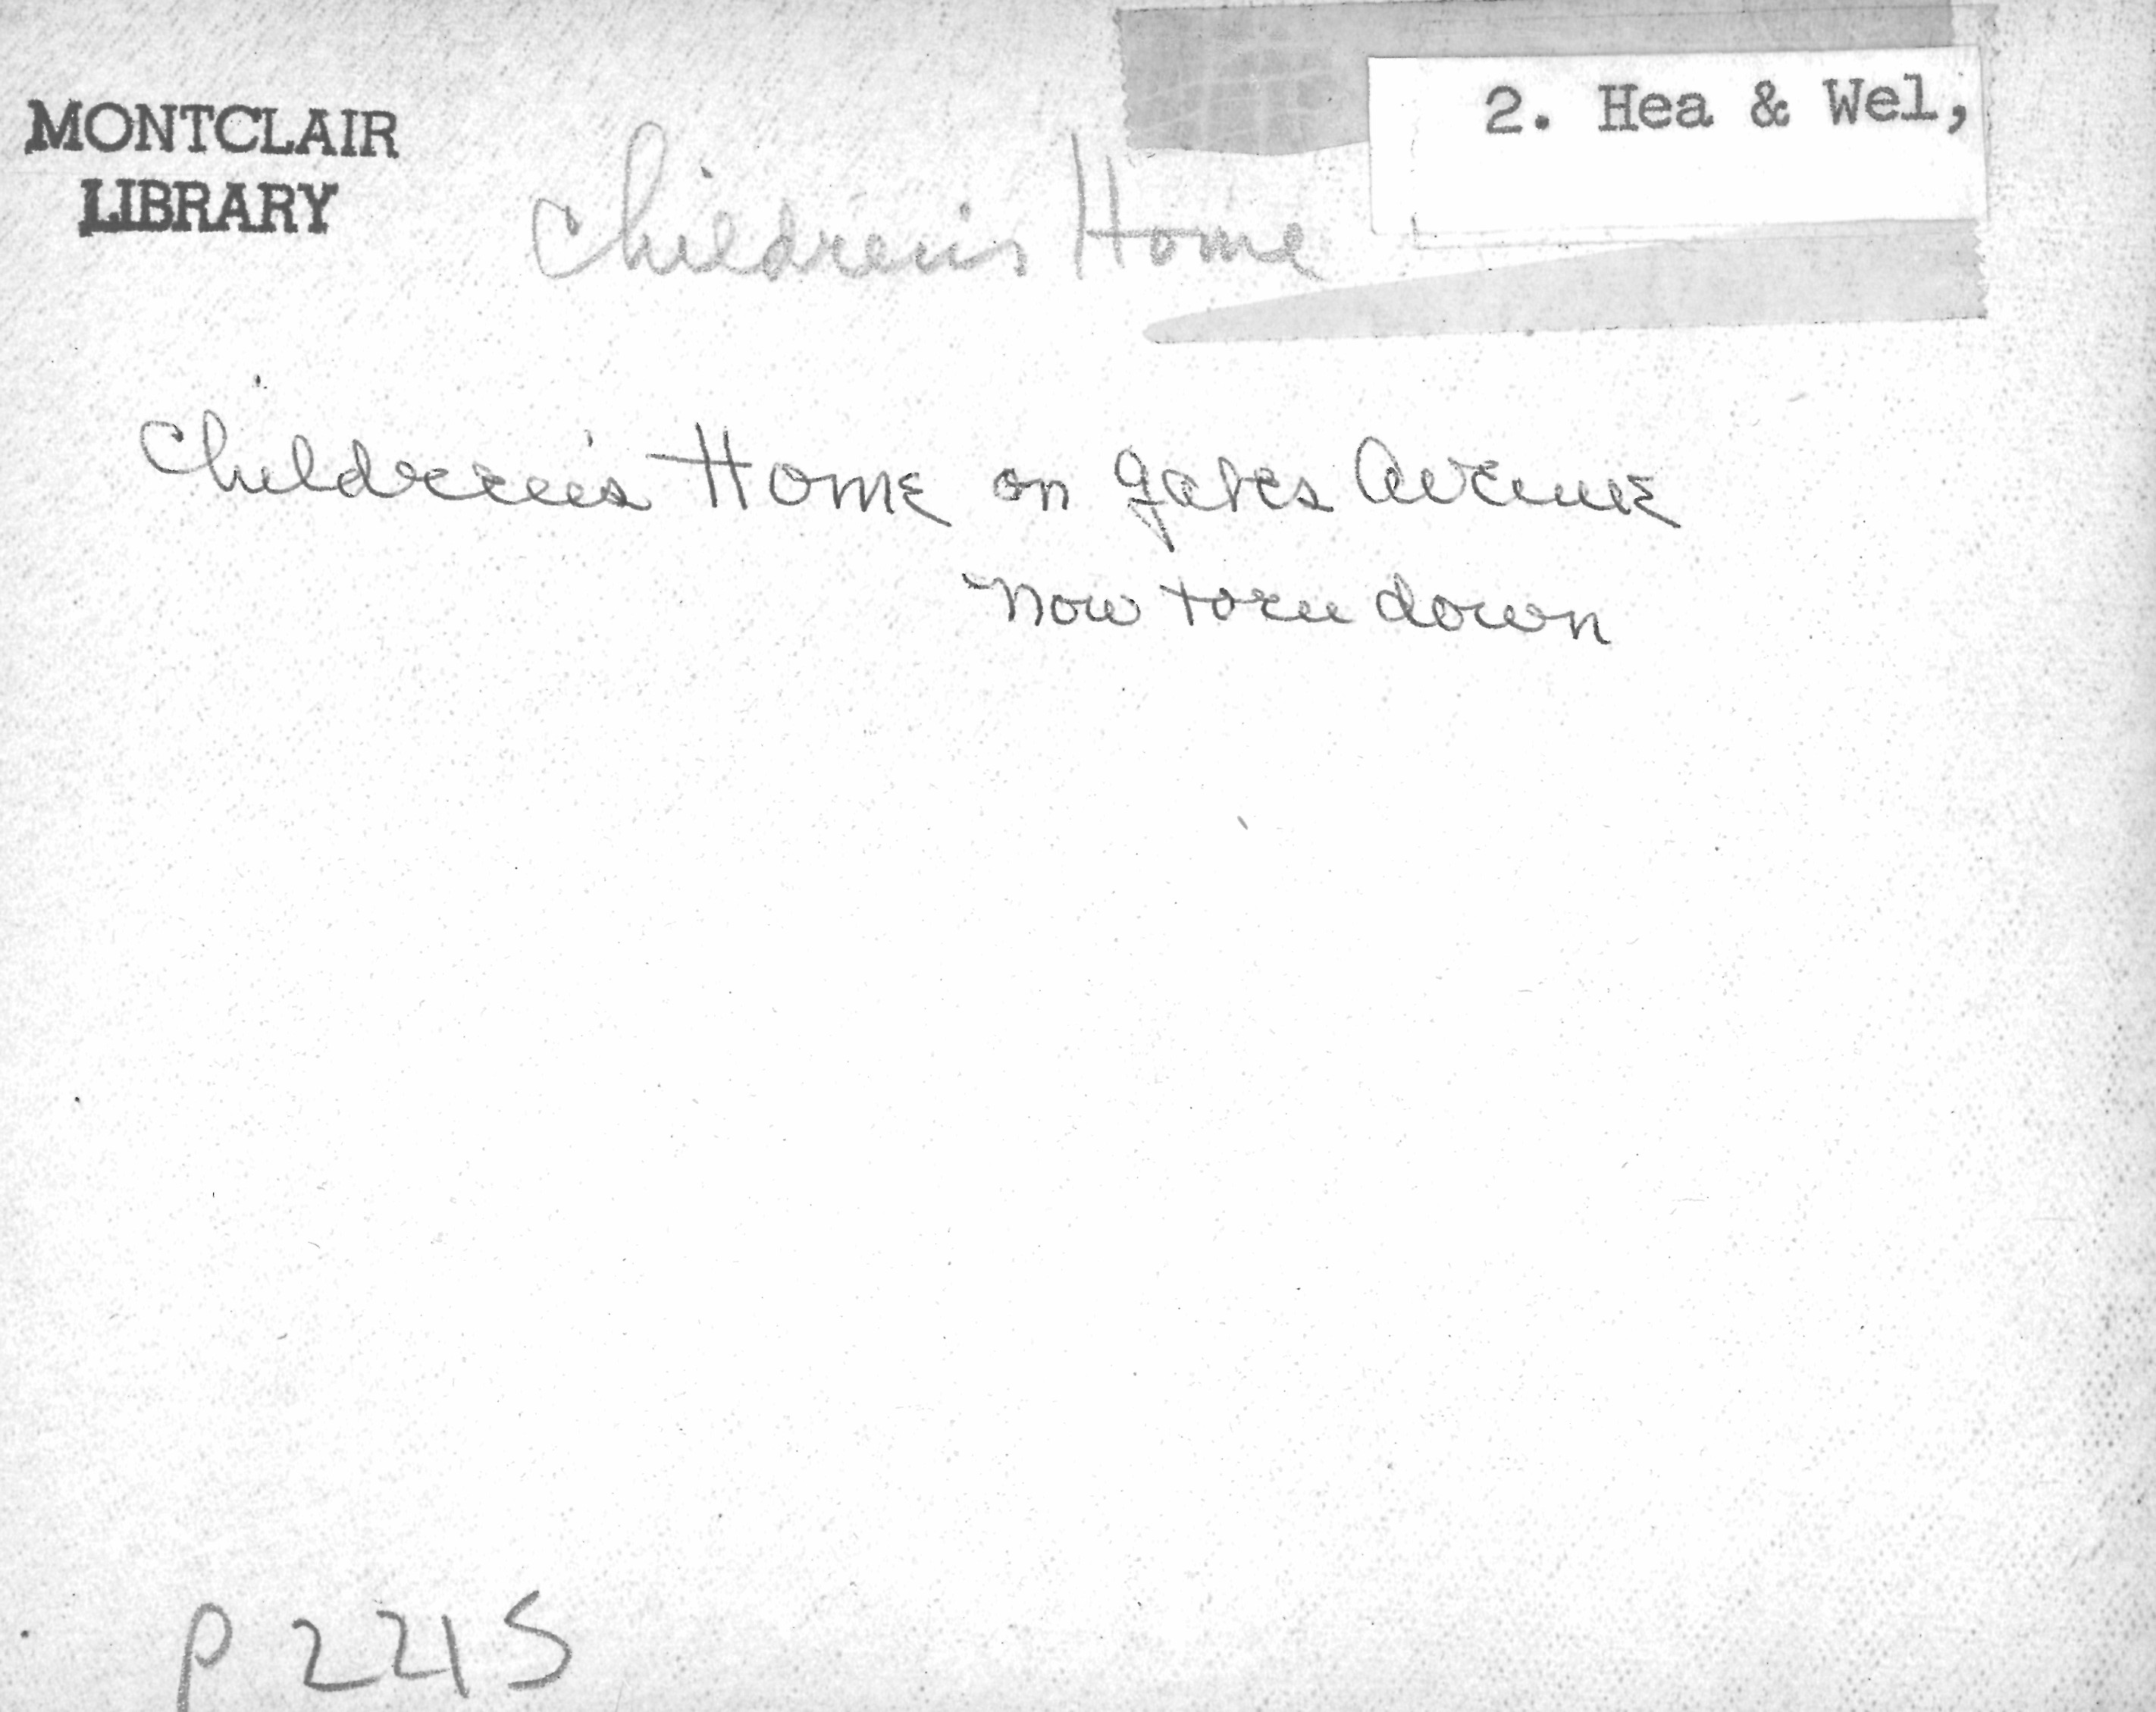 MONTCLAIR
LIBRARY
2. Hea & Wel,
Children's Home
Children's Home on Gates Avenue
now torn down
P 2215